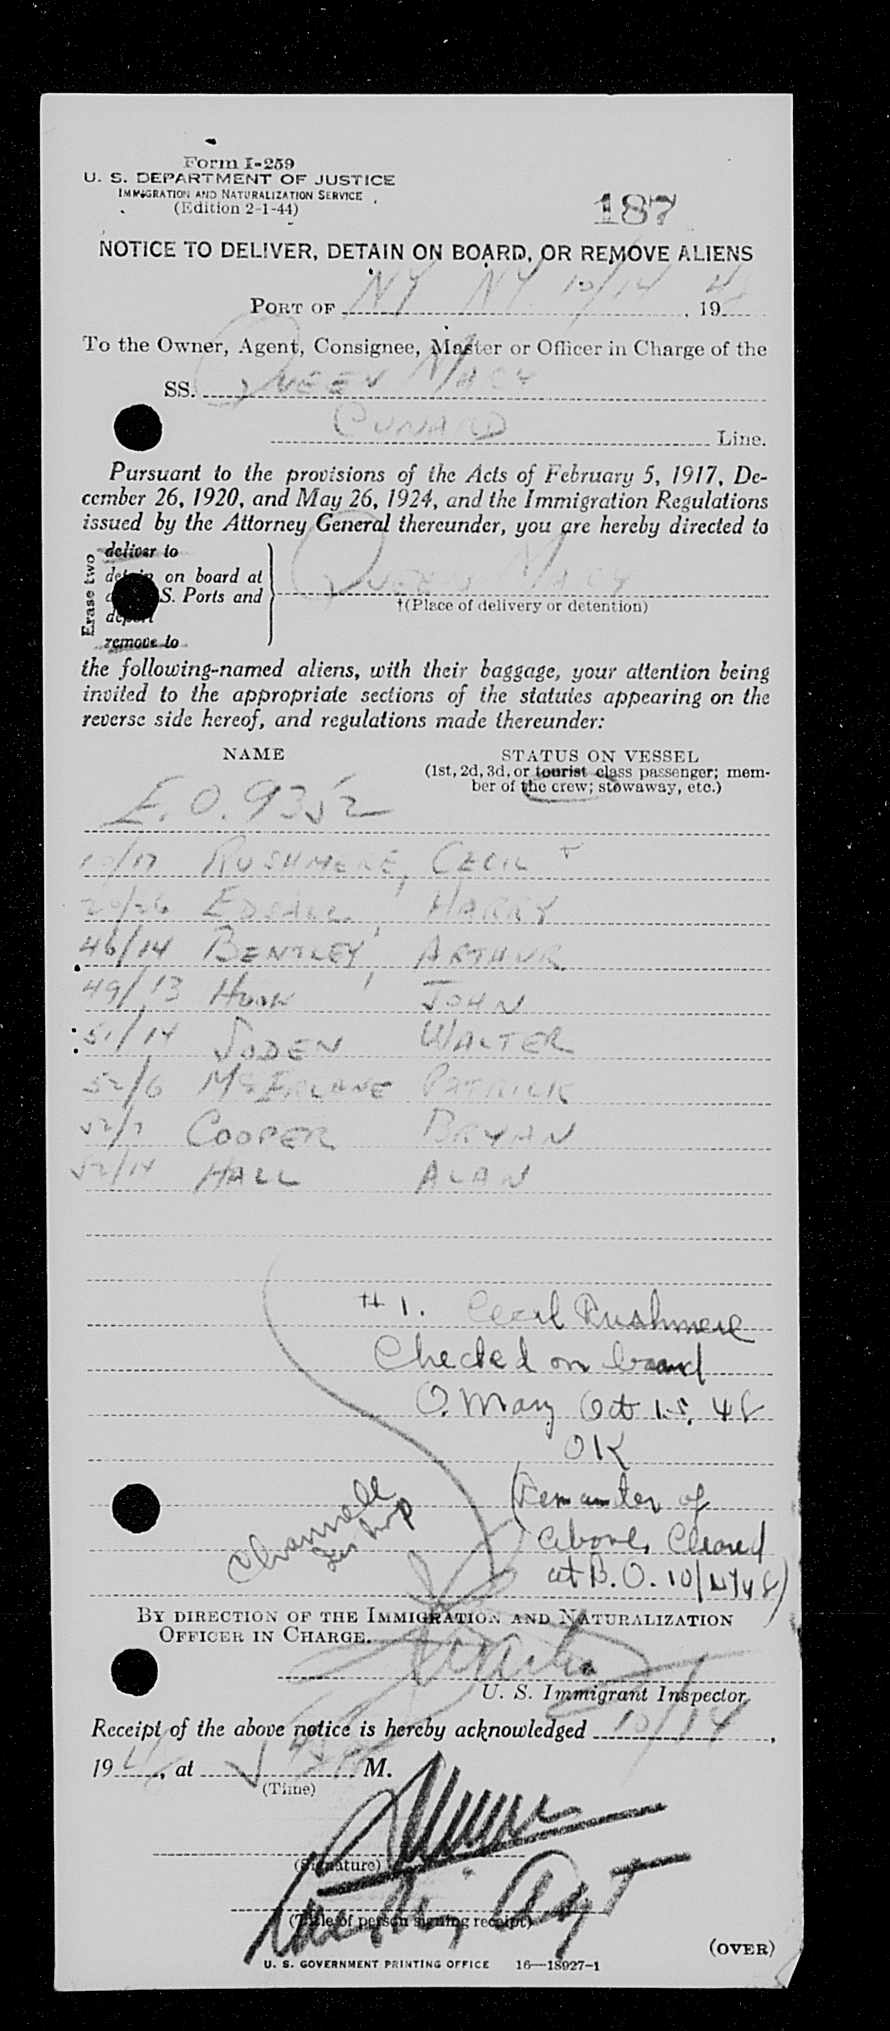 Form I-259
U. S. DEPARTMENT OF JUSTICE
IMMIGRATION AND NATURALIZATION SERVICE
(Edition 2-1-44)
187
NOTICE TO DELIVER, DETAIN ON BOARD, OR REMOVE ALIENS
PORT OF NY NY 10/14, 194
To the Owner, Agent, Consignee, Master or Officer in Charge of the
SS. QUEEN MARY
CUNARD Line.
Pursuant to the provisions of the Acts of February 5, 1917, De-
cember 26, 1920, and May 26, 1924, and the Immigration Regulations
issued by the Attorney General thereunder, you are hereby directed to
Erase two
deliver to
detain on board at
S. Ports and
deport
remove to
QUEEN MARY
†(Place of delivery or detention)
the following-named aliens, with their baggage, your attention being
invited to the appropriate sections of the statutes appearing on the
reverse side hereof, and regulations made thereunder:
NAME STATUS ON VESSEL
(1st, 2d, 3d, or tourist class passenger; mem-
ber of the crew; stowaway, etc.)
E.O. 9352
RUSHMERE, CECIL
EDSALL, HARRY
46/14 BENTLEY, ARTHUR
49/13 HOOK, JOHN
51/14 SODEN WALTER
52/6 McERLANE PATRICK
52/7 COOPER BRYAN
52/14 HALL ALAN
#1. Cecil Rushmere
Checked on board
Q. Mary Oct 15, 48
OK
(Remainder of
above, Cleared
at B.O. 10/14/48)
BY DIRECTION OF THE IMMIGRATION AND NATURALIZATION
OFFICER IN CHARGE.
U. S. Immigrant Inspector.
Receipt of the above notice is hereby acknowledged 10/14,
194, at M.
(Time)
(Signature)
Agt
(Title of person signing receipt)
(OVER)
U. S. GOVERNMENT PRINTING OFFICE 16—18927-1